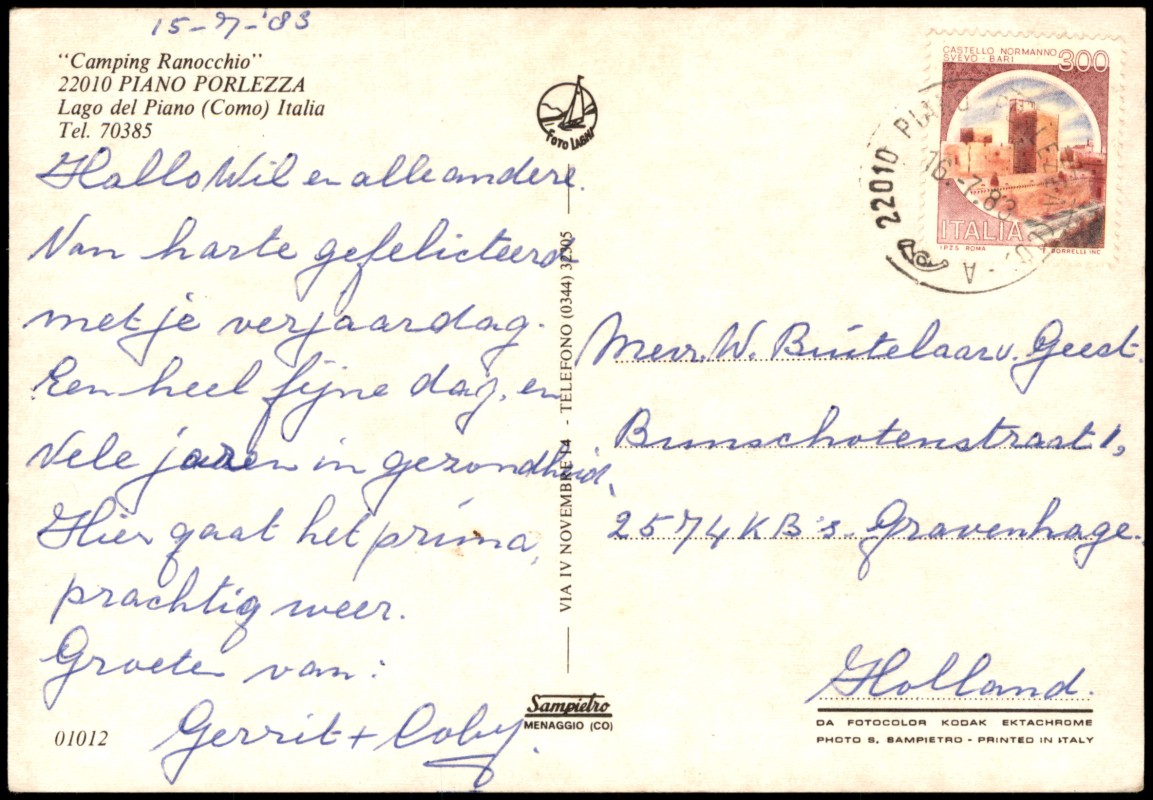 15-7-'83
"Camping Ranocchio"
22010 PIANO PORLEZZA
Lago del Piano (Como) Italia
Tel. 70385
Hallo Wil en alle andere.
Van harte gefeliciteerd
met je verjaardag.
Een heel fijne dag, en
Vele jaren in gezondheid.
Hier gaat het prima,
prachtig weer.
Groeten van:
Gerrit + Coby.
01012
FOTO LASNI
VIA IV NOVEMBRE 14 - TELEFONO (0344) 32305
Sampietro
MENAGGIO (CO)
CASTELLO NORMANNO
SVEVO - BARI
300
ITALIA
I.P.Z.S. ROMA
E. BORRELLI INC.
22010 PIANO
16.-7.83
A
Mevr. W. Buitelaar v. Geest.
Bunschotenstraat 1,
2574 KB 's Gravenhage.
Holland.
DA FOTOCOLOR KODAK EKTACHROME
PHOTO S. SAMPIETRO - PRINTED IN ITALY